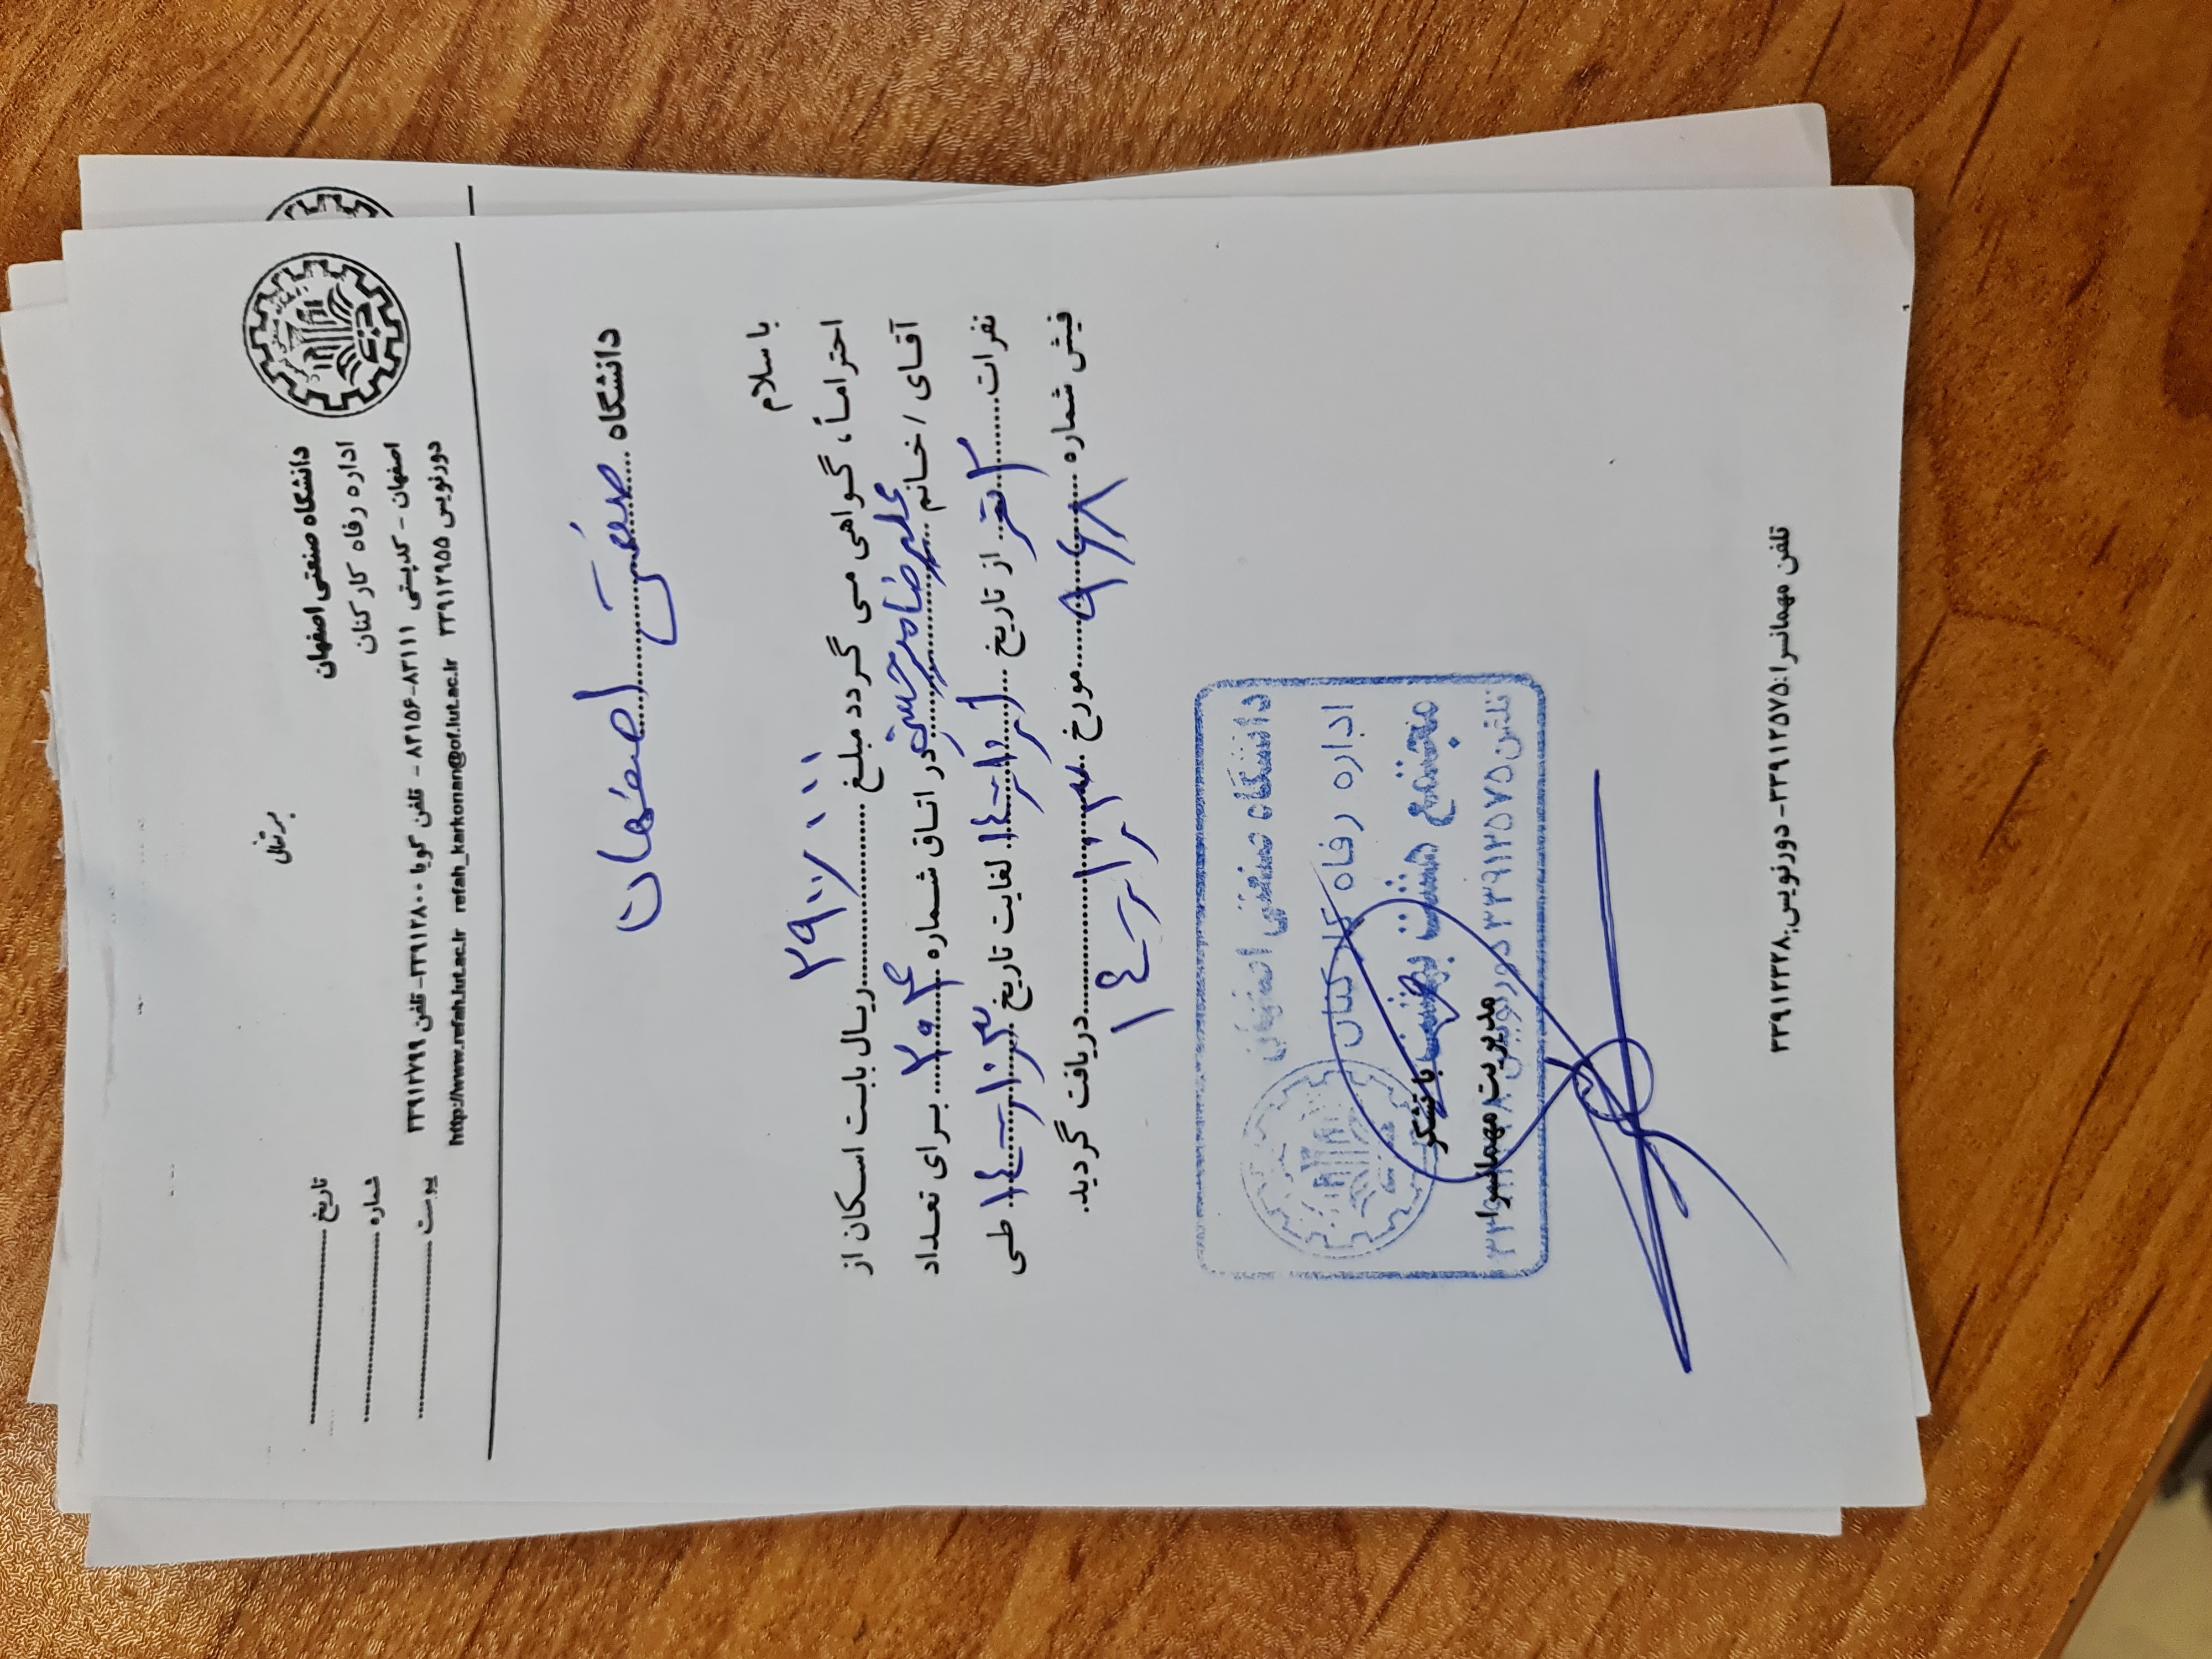 بسمه تعالی
دانشگاه صنعتی اصفهان
اداره رفاه کارکنان
اصفهان - کدپستی ۸۳۱۱۱-۸۴۱۵۶ - تلفن گویا ۳۳۹۱۲۸۰۰- تلفن ۳۳۹۱۲۷۹۹
دورنویس ۳۳۹۱۲۹۵۵ refah_karkonan@of.iut.ac.ir http://www.refah.iut.ac.ir
تاریخ
شماره
پیوست
دانشگاه صنعتی اصفهان
با سلام
احتراماً، گواهی می گردد مبلغ ۲۹۰۰/۰۰۰ ریال بابت اسکان از
آقای / خانم علیرضا میرحسینی در اتاق شماره ۲۰۴ برای تعداد
نفرات ۲ نفر از تاریخ لغایت تاریخ طی
فیش شماره ۹۶۸ مورخ دریافت گردید.
دانشگاه صنعتی اصفهان
اداره رفاه کارکنان
مجتمع هشت بهشت
تلفن ۳۳۹۱۲۵۷۵ دورنویس
با تشکر
مدیریت مهمانسرا
تلفن مهمانسرا:۳۳۹۱۲۵۷۵- دورنویس:۳۳۹۱۲۳۲۸